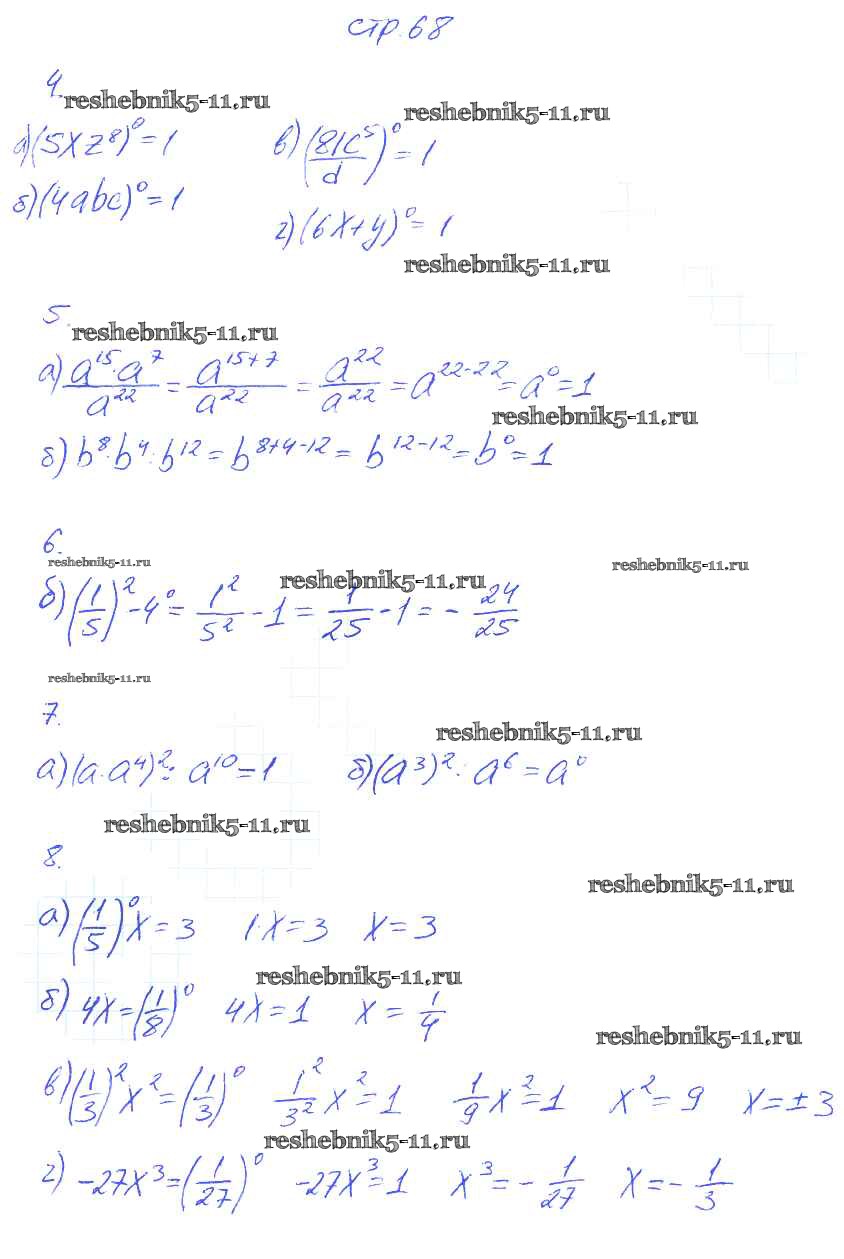 стр. 68
4.
reshebnik5-11.ru
reshebnik5-11.ru
а) (5xz⁸)⁰ = 1 в) (81c⁵/d)⁰ = 1
б) (4abc)⁰ = 1 г) (6x+y)⁰ = 1
reshebnik5-11.ru
5.
reshebnik5-11.ru
а) a¹⁵·a⁷/a²² = a¹⁵⁺⁷/a²² = a²²/a²² = a²²⁻²² = a⁰ = 1
reshebnik5-11.ru
б) b⁸·b⁴:b¹² = b⁸⁺⁴⁻¹² = b¹²⁻¹² = b⁰ = 1
6.
reshebnik5-11.ru reshebnik5-11.ru reshebnik5-11.ru
б) (1/5)² - 4⁰ = 1²/5² - 1 = 1/25 - 1 = - 24/25
reshebnik5-11.ru
7.
reshebnik5-11.ru
а) (a·a⁴)² : a¹⁰ = 1 б) (a³)² : a⁶ = a⁰
reshebnik5-11.ru
8.
reshebnik5-11.ru
а) (1/5)⁰x = 3 1·x = 3 x = 3
reshebnik5-11.ru
б) 4x = (1/8)⁰ 4x = 1 x = 1/4
reshebnik5-11.ru
в) (1/3)²x² = (1/3)⁰ 1²/3² x² = 1 1/9 x² = 1 x² = 9 x = ±3
reshebnik5-11.ru
г) -27x³ = (1/27)⁰ -27x³ = 1 x³ = - 1/27 x = - 1/3